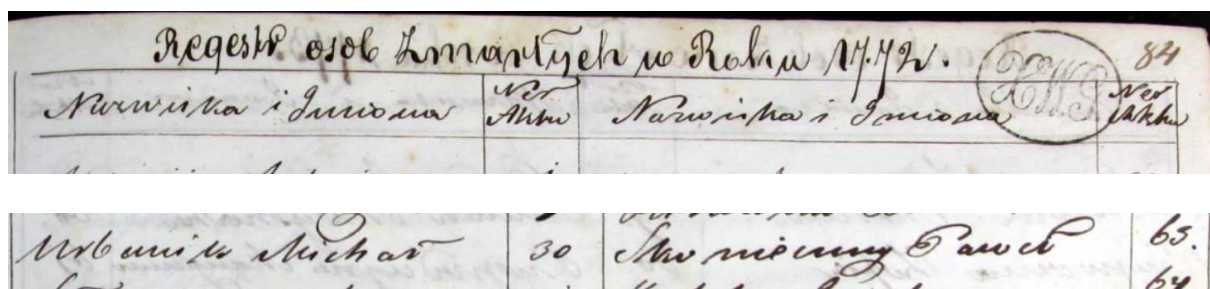 Regestr osob Zmarłych w Roku 1772.
84
Nazwiska i Imiona Ner Aktu Nazwiska i Imiona Ner Aktu
Urbanik Michał 30 Paweł 63.
64